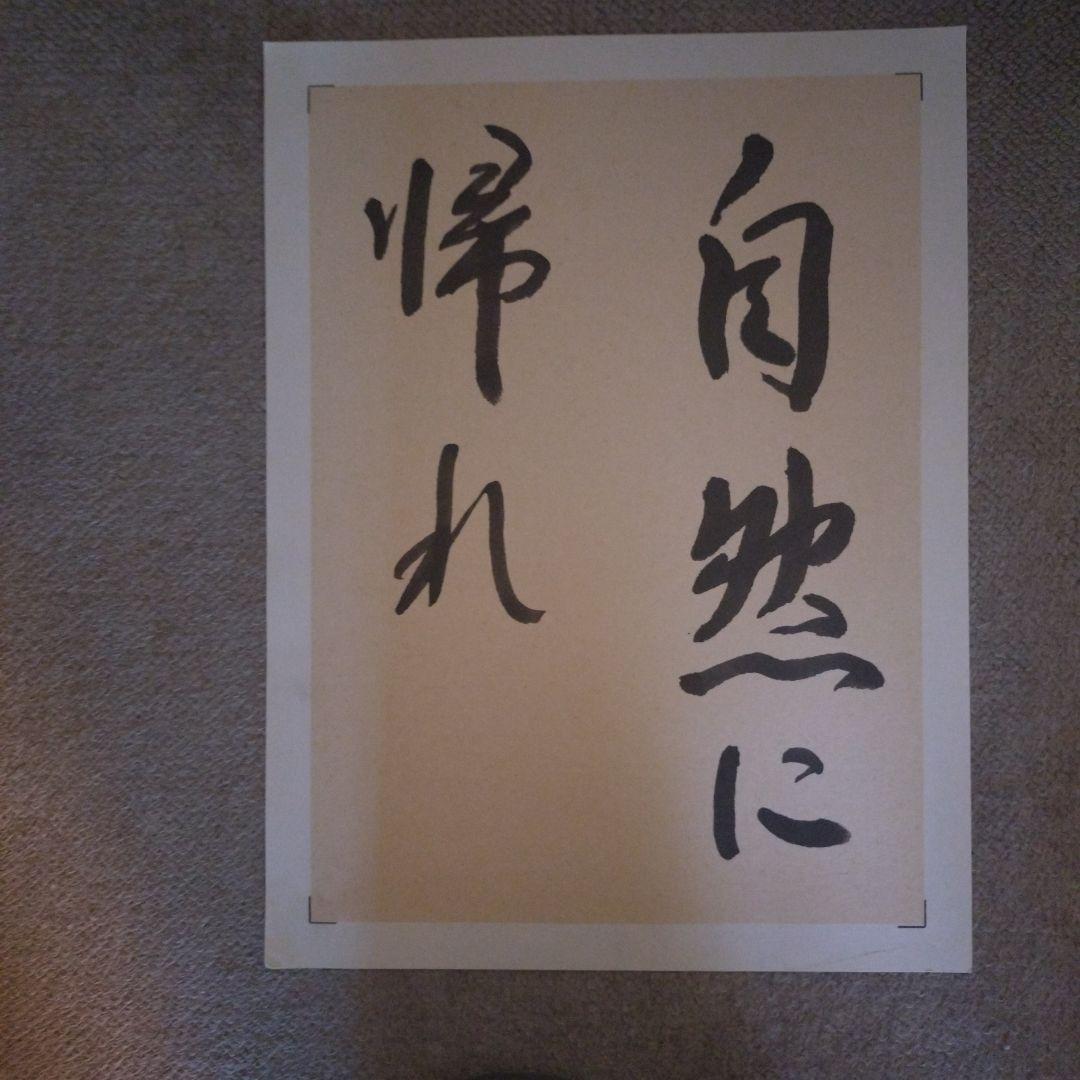 自然に
帰れ